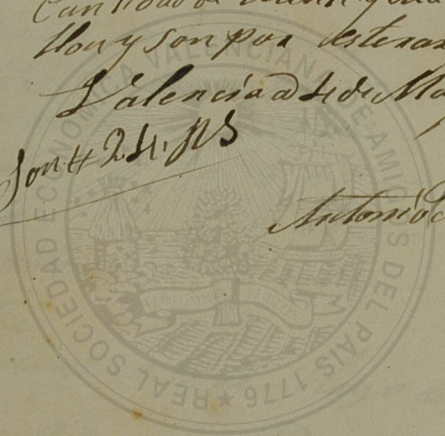 Cantidad de veinte y cua
llon y son por
Valencia a 4 de Ma
Son # 24. RS
Antonio
REAL SOCIEDAD ECONÓMICA VALENCIANA DE AMIGOS DEL PAIS 1776